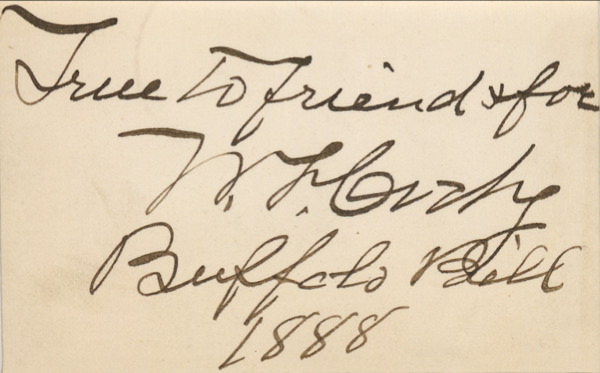 True to friend & foe
W. F. Cody
Buffalo Bill
1888